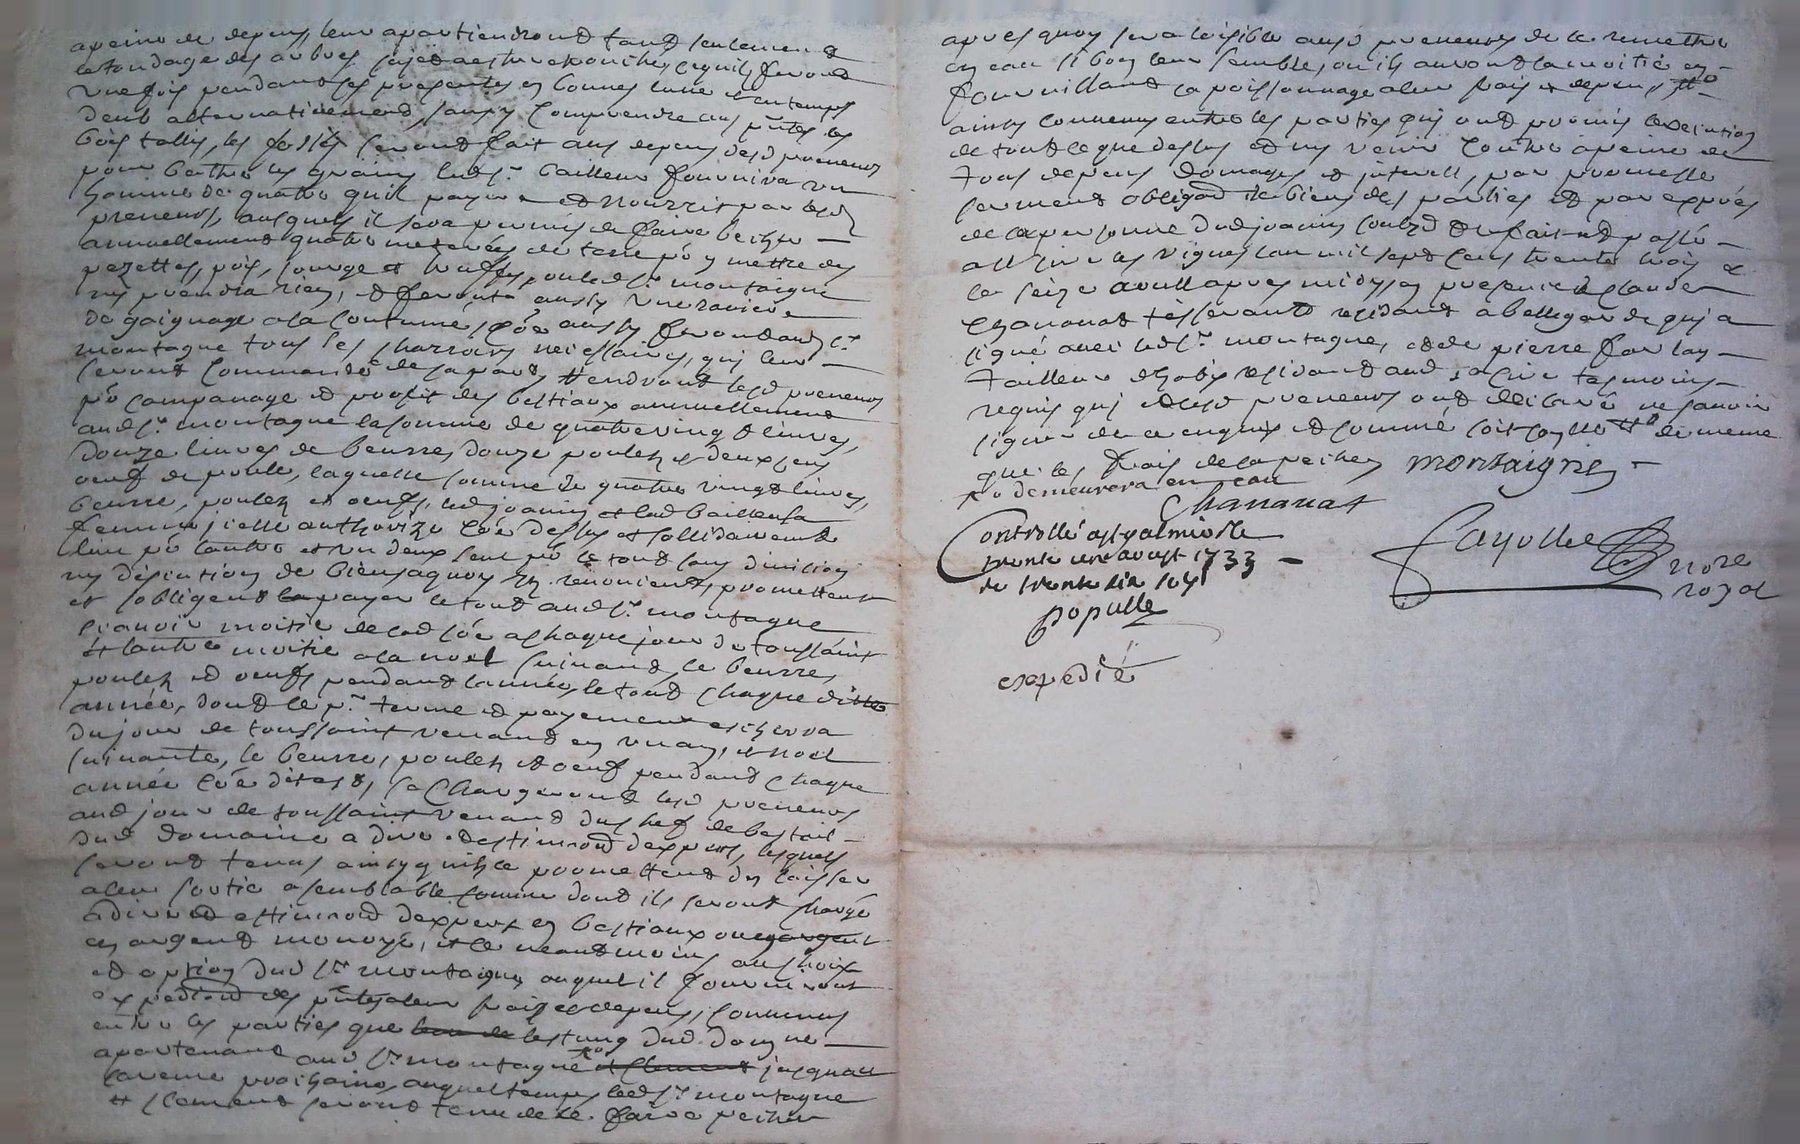 apeine de depens, leur apartiendront tant seulement
le tondage des arbres sujet a estre ebouchés, ce qu'ils feront
une fois pendant les presentes en bonnes lune et en temps
deub alternativement, sans y comprendre aus pntes les
bois tallis, les fossés seront fait aus depens desd preneurs
pour battre les grains led sr. bailleur fournira un
homme de quatre qu'il payera et nourris par lesd
preneurs, ausquels il sera permis de faire becher
annuellement quatre meterées de terre po y mettre des
pezettes, pois, courge et truffes, ou led sr montaigne
ny prendra rien, et feront aussy une raviere
de gaignage a la coutume, coe aussy feront aud sr.
montagne tous les charrois necessaires, qui leur
seront commandé de sa part, tiendront lesd preneurs
po companage et profit des bestiaux annuellement
aud sr. montagne la somme de quatre vingt livres,
douze livres de beurre, douze poulets et deux cens
oeuf de poule, laquelle somme de quatre vingt livres,
beurre, poulets et oeufs, led joanin et lad bailleu sa
femme jcelle authorizé coe dessus et sollidairement
l'un po l'autre et un deux seul po le tout sans division
ny discution de biens a quoy ils renoncent, promettent
et s'obligent payer le tout aud sr. montagne
scavoir moitié de lad soe a chaque jour de toussaint
et l'autre moitié a la noel suivant, le beurre,
poulets et oeufs pendant l'année, le tout chaque ditte
année, dont le pr. terme et payement escherra
du jour de toussaint venant en un an, et noel
suivante, le beurre, poulets et oeuf pendant chaque
année coe dit est, se chargeront lesd preneurs
aud jour de toussaint venant du chef de bestail
dud domaine a dire et estimaon d'expers, lesquels
seront tenus ainsy qu'ils le promettent d'en laisser
a leur sortie a semblable somme dont ils seront chargé
a dire et estimaon d'expers en bestiaux ou en argent
en argent monoyé, et ce neantmoins au choix
et option dud sr montagne, auquel il fourniront
expedion des pntes a leur frais et depens, convenus
entre les parties que l'estang dud domne
apartenant aud sr. montagne et Clement jusqu'au
careme prochaine, auquel temps led sr. montagne
et Clement seront tenu de le faire pecher
apres quoy sera loisible ausd preneurs de le remettre
en eau si bon leur semble, ou ils auront la moitié en
fournissant la poissonnage a leur frais et depens,
ainsy convenus entre les parties qui ont promis l'execution
de tout ce que dessus et ny venir contre a peine de
tous depens domages et interest, par promesse
serment obligaon de biens des parties et par expres
de la personne dud joanin soubzd et fait et passé
a St Cire les vignes l'an mil sept cens trente trois et
le seize avull apres midy, en presence de claude
Chananat tisserant residant a bellegarde qui a
signé avec led sr. montagne, et de pierre farlay
tailleur d'habis residant aud St Cire tesmoins
requis qui et lesd preneurs ont declaré ne scavoir
signer de ce enquis et sommé
que les frais de la peche montaigne
po demeurera en eau
Chananat
Controllé a st galmier le
trente une aoust 1733
re trente six sols
populle
Fayolle
nore
royal
expedié